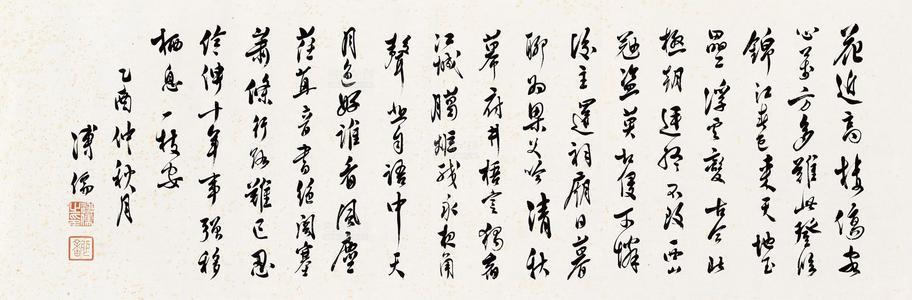 花近高樓傷客
心萬方多難此登臨
錦江春色來天地玉
壘浮雲變古今北
極朝廷終不改西山
寇盜莫相侵可憐
後主還祠廟日暮
聊為梁父吟清秋
幕府井梧寒獨宿
江城臘炬殘永夜角
聲悲自語中天
月色好誰看風塵
荏苒音書絕關塞
蕭條行路難已忍
伶俜十年事強移
栖息一枝安
乙酉仲秋月
溥儒